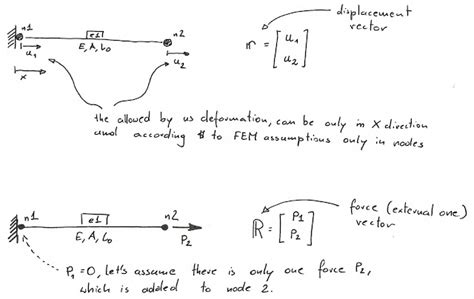 displacement
vector
n1
e1
n2
u1
E, A, L0
u2
x
r = [ u1
u2 ]
the allowed by us deformation, can be only in X direction
and according to FEM assumptions only in nodes
n1
e1
n2
E, A, L0
P2
R = [ P1
P2 ]
force (external one)
vector
P1 = 0, let's assume there is only one force P2,
which is added to node 2.